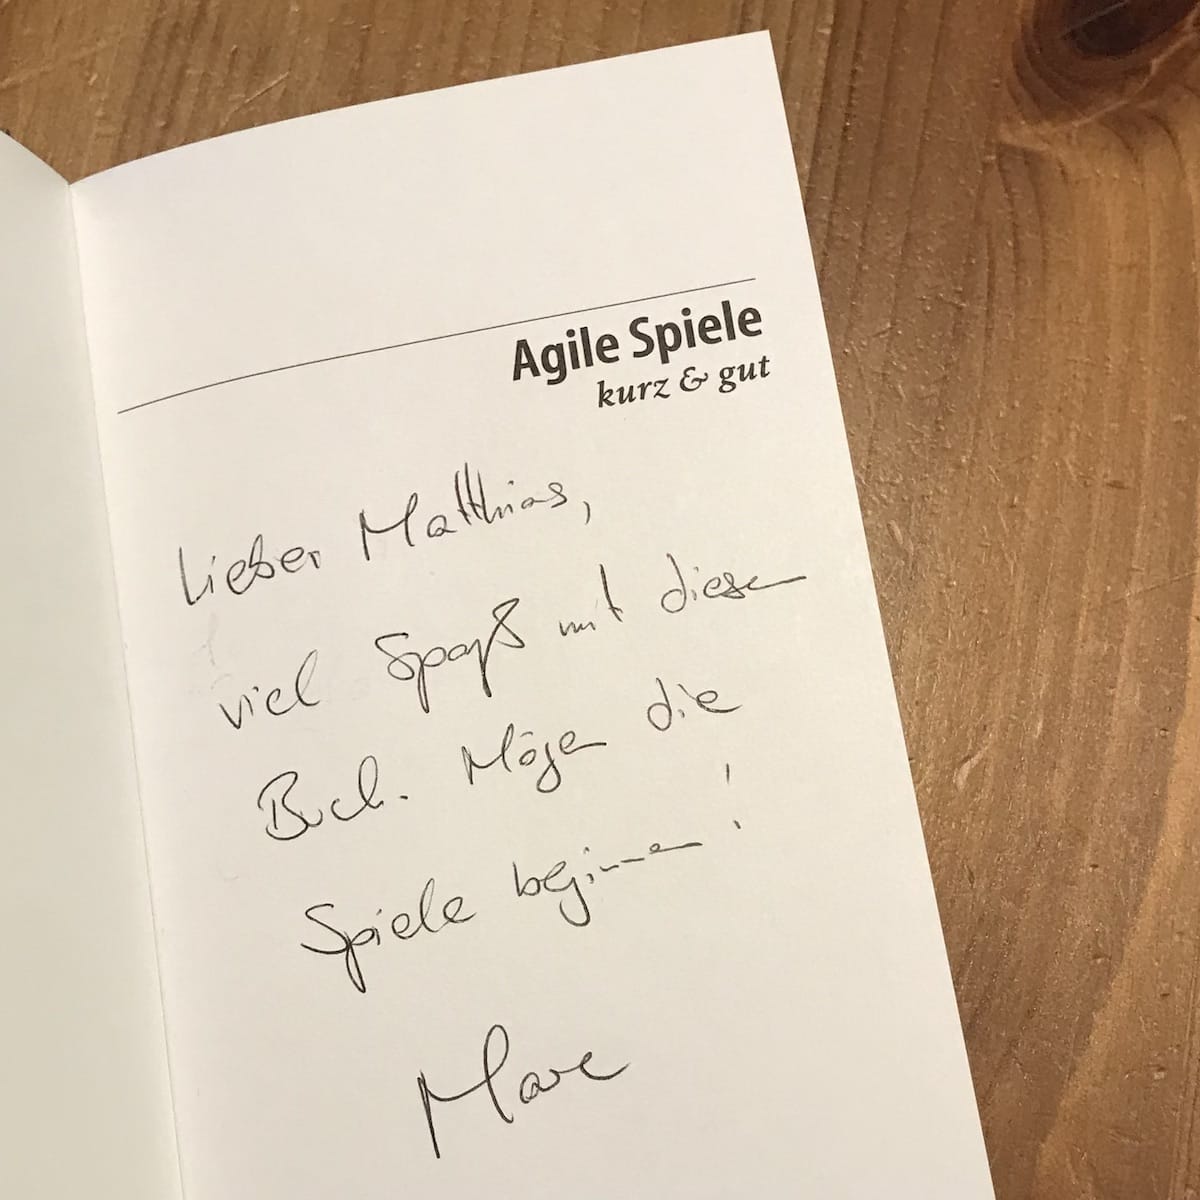 Agile Spiele
kurz & gut
Lieber Matthias,
viel Spaß mit diesem
Buch. Mögen die
Spiele beginnen!
Marc